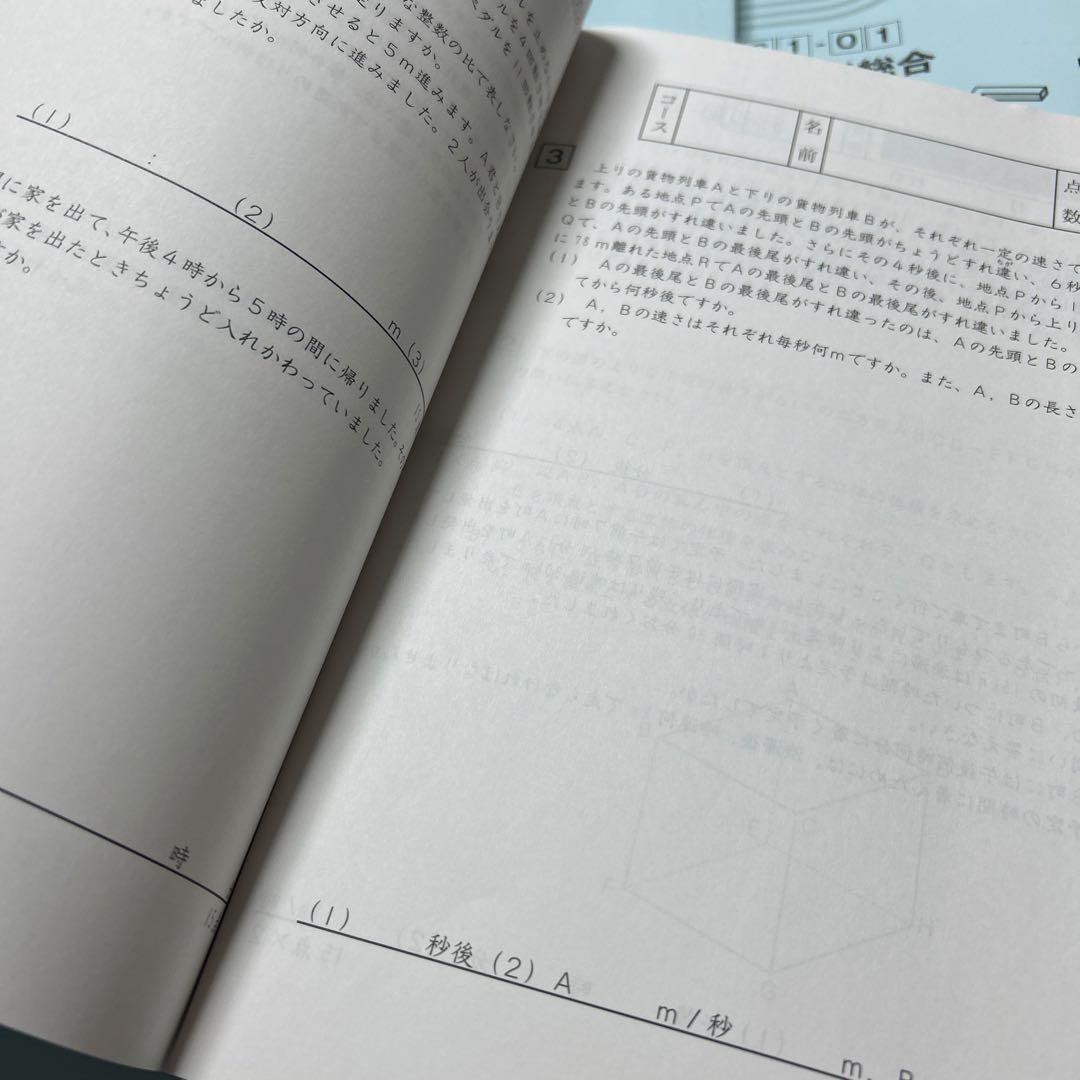 な整数の比で表しな
りますか。
させると5m進みます。A君と
反対方向に進みました。2人が出会
ましたか。
(1)
:
(2)
m (3)
に家を出て、午後4時から5時の間に帰りました。
家を出たときちょうど入れかわっていました。
か。
時
1-01
総合
コース
名前
点数
3
上りの貨物列車Aと下りの貨物列車Bが、それぞれ一定の速さで
ます。ある地点PでAの先頭とBの先頭がちょうどすれ違い、6秒
とBの先頭がすれ違いました。さらにその4秒後に、地点Pから1
Qで、Aの先頭とBの最後尾がすれ違い、その後、地点Pから上り
に78m離れた地点RでAの最後尾とBの最後尾がすれ違いました。
(1) Aの最後尾とBの最後尾がすれ違ったのは、Aの先頭とBの
てから何秒後ですか。
(2) A, Bの速さはそれぞれ毎秒何mですか。また、A, Bの長さ
ですか。
(1)
秒後 (2) A
m/秒
m, B